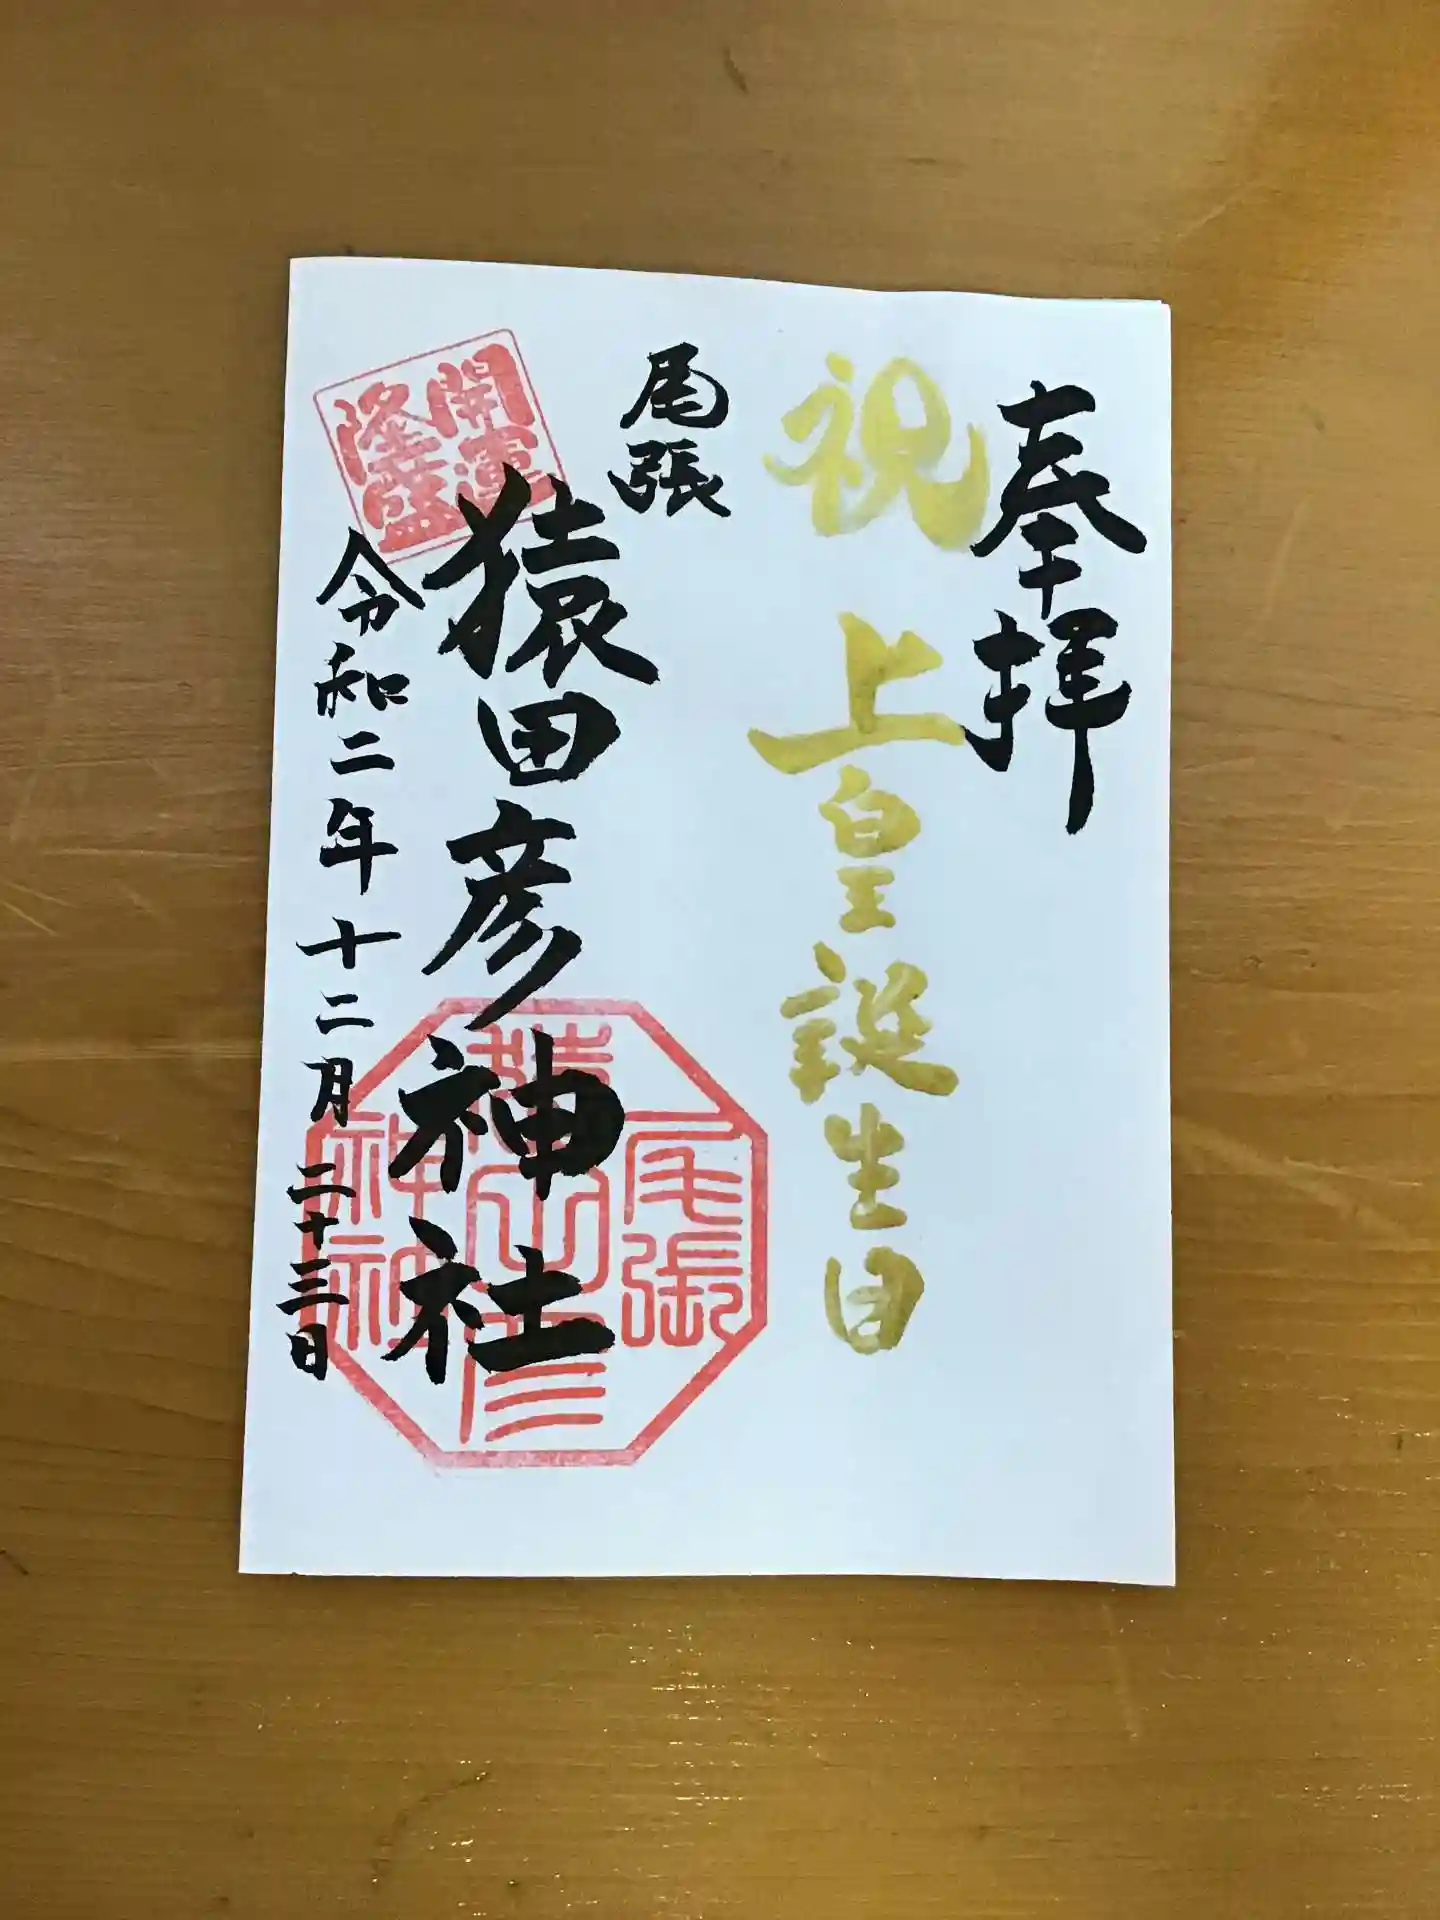 奉拝
祝 上皇誕生日
尾張
猿田彦神社
令和二年十二月二十三日
開運
隆盛
尾張
猿田彦
神社